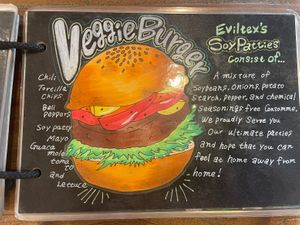 Veggie Burger
Chili
Tortilla
Chips
Bell
Peppers
Soy patty
Mayo
Guaca
mole
toma
to
and
Lettuce
Eviltex's
Soy Patties
consist of...
A mixture of
Soybeans, Onions, potato
Starch, pepper, and chemical
Seasonings-free Consomme.
We proudly serve you
Our ultimate patties
and hope that you can
feel at home away from
home!